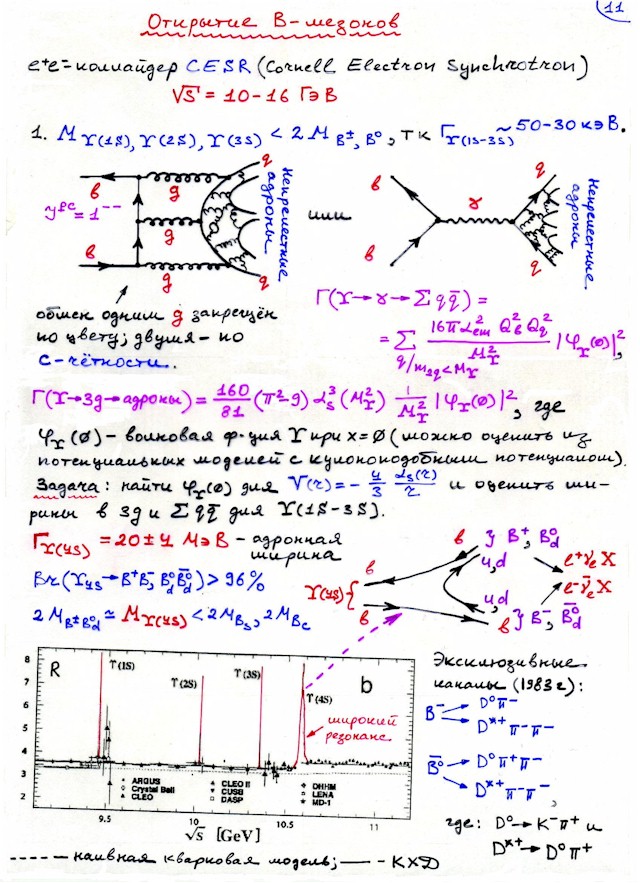 11
Открытие B-мезонов
e⁺e⁻-коллайдер CESR (Cornell Electron Synchrotron)
√s = 10-16 ГэВ
1. M_Υ(1S), Υ(2S), Υ(3S) < 2M_B±, B⁰, тк Γ_Υ(1S-3S) ~ 50-30 кэВ.
в g q
J^PC = 1⁻⁻ g
в g q
Непрелестные адроны
или
в γ q
в q
Непрелестные адроны
обмен одним g запрещён
по цвету; двумя - по
С-чётности.
Γ(Υ→γ→Σqq̄) =
= Σ_{q/m_2q<M_Υ} (16π α²_em Q²_в Q²_q / M²_Υ) |φ_Υ(0)|²,
Γ(Υ→3g→адроны) = 160/81 (π²-9) α³_s (M²_Υ) 1/M²_Υ |φ_Υ(0)|², где
φ_Υ(0) - волновая ф-ция Υ при x=0 (можно оценить из
потенциальных моделей с кулоноподобным потенциалом).
Задача: найти φ_Υ(0) для V(r) = - 4/3 α_s(r)/r и оценить ши-
рины в 3g и Σqq̄ для Υ(1S-3S).
Γ_Υ(4S) = 20±4 МэВ - адронная
ширина
Br(Υ_4S → B⁺B⁻, B⁰_d B̄⁰_d) > 96%
2M_B±B⁰_d ≃ M_Υ(4S) < 2M_Bs, 2M_Bc
Υ(4S) {
в
в
в } B⁺, B⁰_d
u,d
u,d
в } B⁻, B̄⁰_d
e⁺ν_e X
e⁻ν̄_e X
R
b
8
7
6
5
4
3
2
Υ(1S)
Υ(2S)
Υ(3S)
Υ(4S)
широкий
резонанс
ARGUS
Crystal Ball
CLEO
CLEO II
CUSB
DASP
DHHM
LENA
MD-1
9.5 10 10.5 11
√s [GeV]
Эксклюзивные
каналы (1983 г):
B⁻ → D⁰π⁻
→ D*⁺π⁻π⁻
B̄⁰ → D⁰π⁺π⁻
→ D*⁺π⁻π⁻,
где: D⁰ → K⁻π⁺ и
D*⁺ → D⁰π⁺
---- - наивная кварковая модель; —— - КХД